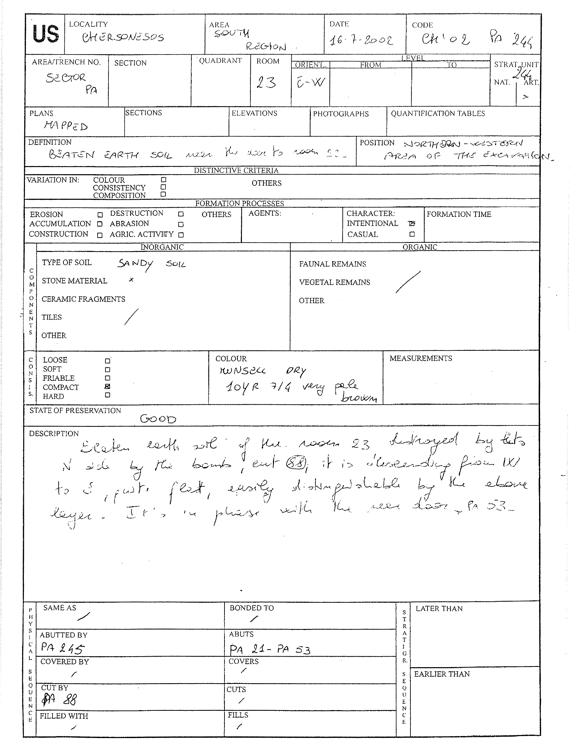 US
LOCALITY
CHERSONESOS
AREA
SOUTH
REGION
DATE
16-7-2002
CODE
CH'02 PA 244
AREA/TRENCH NO.
SECTOR
PA
SECTION
QUADRANT
ROOM
23
LEVEL
ORIENT. FROM TO
E-W
STRAT. UNIT
244
NAT. ART.
>
PLANS
MAPPED
SECTIONS
ELEVATIONS
PHOTOGRAPHS
QUANTIFICATION TABLES
DEFINITION
BEATEN EARTH SOIL near the
POSITION NORTHERN-WESTERN
AREA OF THE EXCAVATION
DISTINCTIVE CRITERIA
VARIATION IN: COLOUR
CONSISTENCY
COMPOSITION
OTHERS
FORMATION PROCESSES
EROSION DESTRUCTION OTHERS
ACCUMULATION ABRASION
CONSTRUCTION AGRIC. ACTIVITY
AGENTS:
CHARACTER:
INTENTIONAL
CASUAL
FORMATION TIME
COMPONENTS
INORGANIC
TYPE OF SOIL SANDY SOIL
STONE MATERIAL x
CERAMIC FRAGMENTS
TILES /
OTHER
ORGANIC
FAUNAL REMAINS
VEGETAL REMAINS /
OTHER
CONSIS.
LOOSE
SOFT
FRIABLE
COMPACT
HARD
COLOUR
MUNSELL DRY
10YR 7/4 very pale
brown
MEASUREMENTS
STATE OF PRESERVATION
GOOD
DESCRIPTION
Beaten earth soil of the room 23 destroyed by its
N side by the bomb, cut 88, it is descending from W
to E, flat, easily distinguishable by the above
layer. It's in phase with the door PA 53
PHYSICAL SEQUENCE
SAME AS
/
BONDED TO
/
ABUTTED BY
PA 245
ABUTS
PA 21 - PA 53
COVERED BY
/
COVERS
/
CUT BY
PA 88
CUTS
/
FILLED WITH
/
FILLS
/
STRATIGR. SEQUENCE
LATER THAN
EARLIER THAN